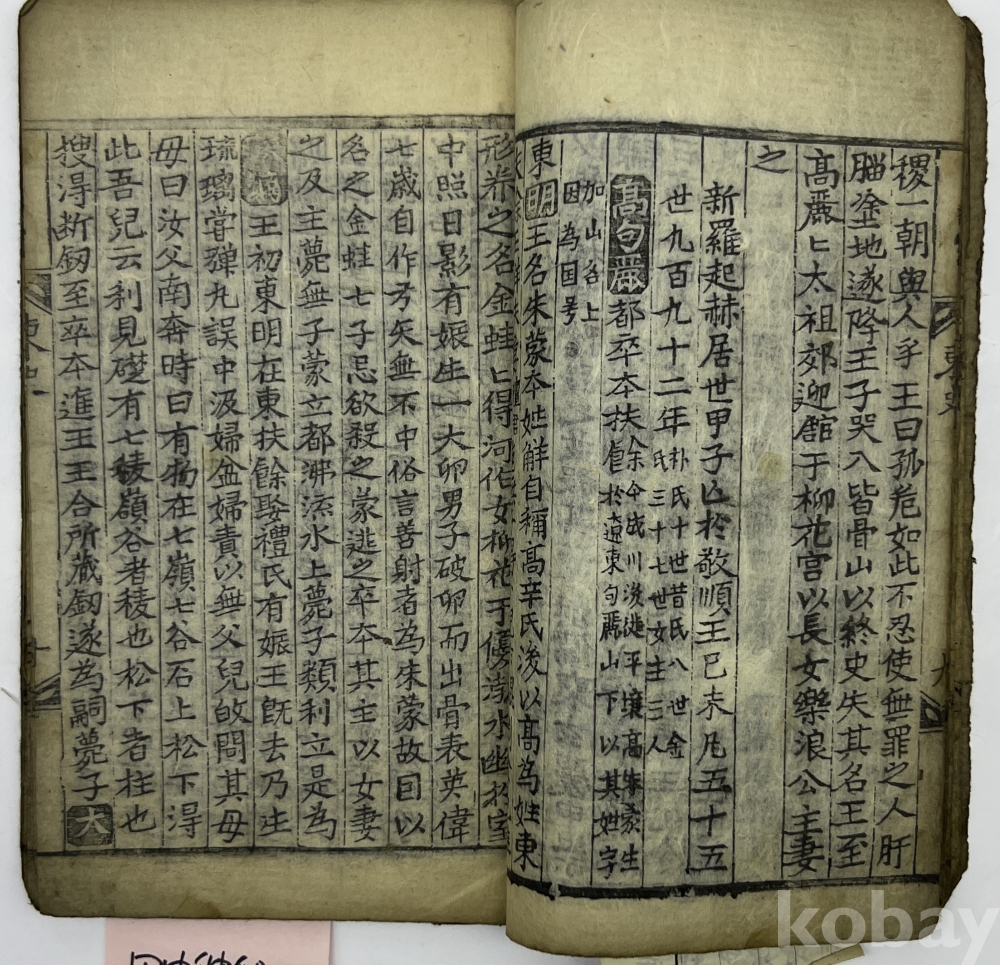 稷一朝與人乎王曰孤危如此不忍使無罪之人肝
腦塗地遂降王子哭入皆骨山以終史失其名王至
高麗〻太祖郊迎舘于柳花宮以長女樂浪公主妻
之
新羅起赫居世甲子亡於敬順王己未凡五十五
世九百九十二年朴氏十世昔氏八世金
氏三十七世女主三人
高句麗都卒本扶餘今成川後徙平壤高朱蒙生
於遼東句麗山下以其姓字
加山名上
因為国号
東明王名朱蒙本姓解自稱高辛氏後以高為姓東
形 之名金蛙〻得河伯女柳花于優渤水幽於室
中照日影有娠生一大卵男子破卵而出骨表英偉
七歲自作弓矢無不中俗言善射者為朱蒙故因以
名之金蛙七子忌欲殺之蒙逃之卒本其主以女妻
之及主薨無子蒙立都沸流水上薨子類利立是為
王初東明在東扶餘娶禮氏有娠王旣去乃生
琉璃嘗彈丸誤中汲婦盆婦責以無父兒故問其母
母曰汝父南奔時曰有物在七嶺七谷石上松下得
此吾兒云利見礎有七稜嶺谷者稜也松下者柱也
搜得断釼至卒本進王王合所藏釼遂為嗣薨子大
東史
九
kobay